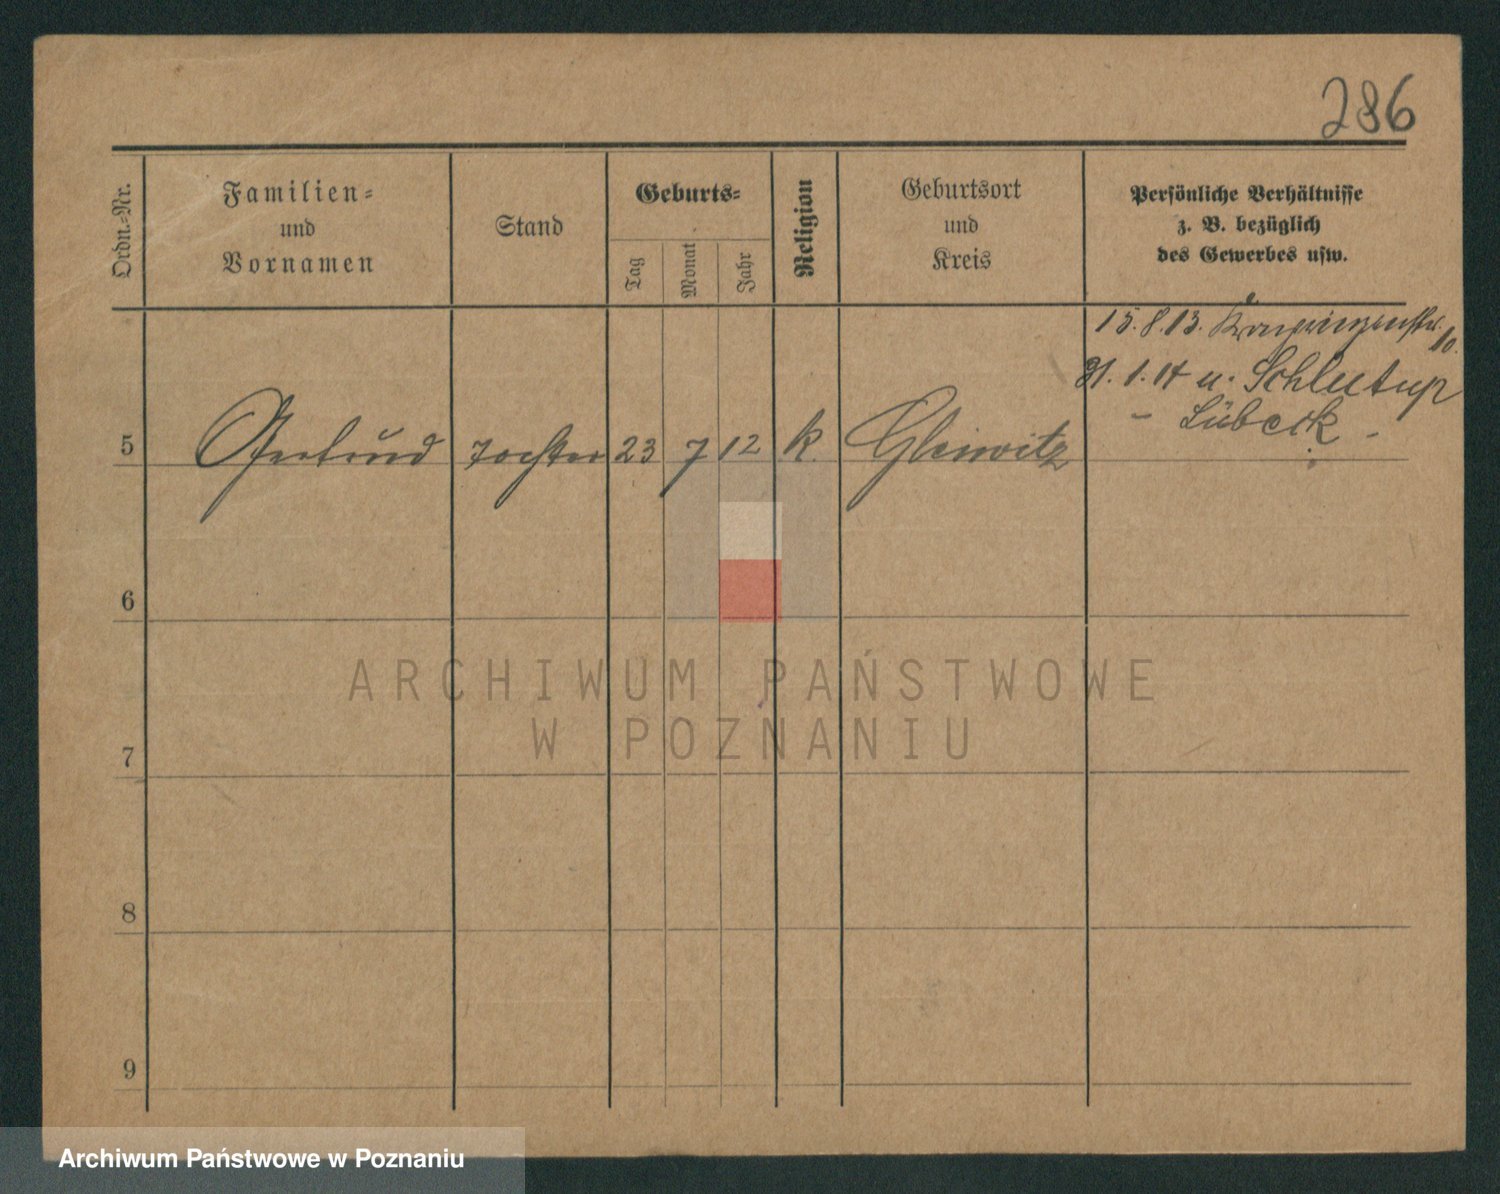 286
Ordn.-Nr.
Familien-
und
Vornamen
Stand
Geburts-
Tag
Monat
Jahr
Religion
Geburtsort
und
Kreis
Persönliche Verhältnisse
z. B. bezüglich
des Gewerbes usw.
15. 8. 13. Kronprinzenstr.
10.
31. 1. 14 n. Schlutup
- Lübeck -
5 Gertrud Tochter 23 7 12 k. Gleiwitz
6
7
8
9
ARCHIWUM PAŃSTWOWE
W POZNANIU
Archiwum Państwowe w Poznaniu